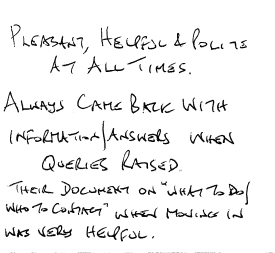 PLEASANT, HELPFUL & POLITE
AT ALL TIMES.
ALWAYS CAME BACK WITH
INFORMATION/ANSWERS WHEN
QUERIES RAISED.
THEIR DOCUMENT ON "WHAT TO DO/
WHO TO CONTACT" WHEN MOVING IN
WAS VERY HELPFUL.